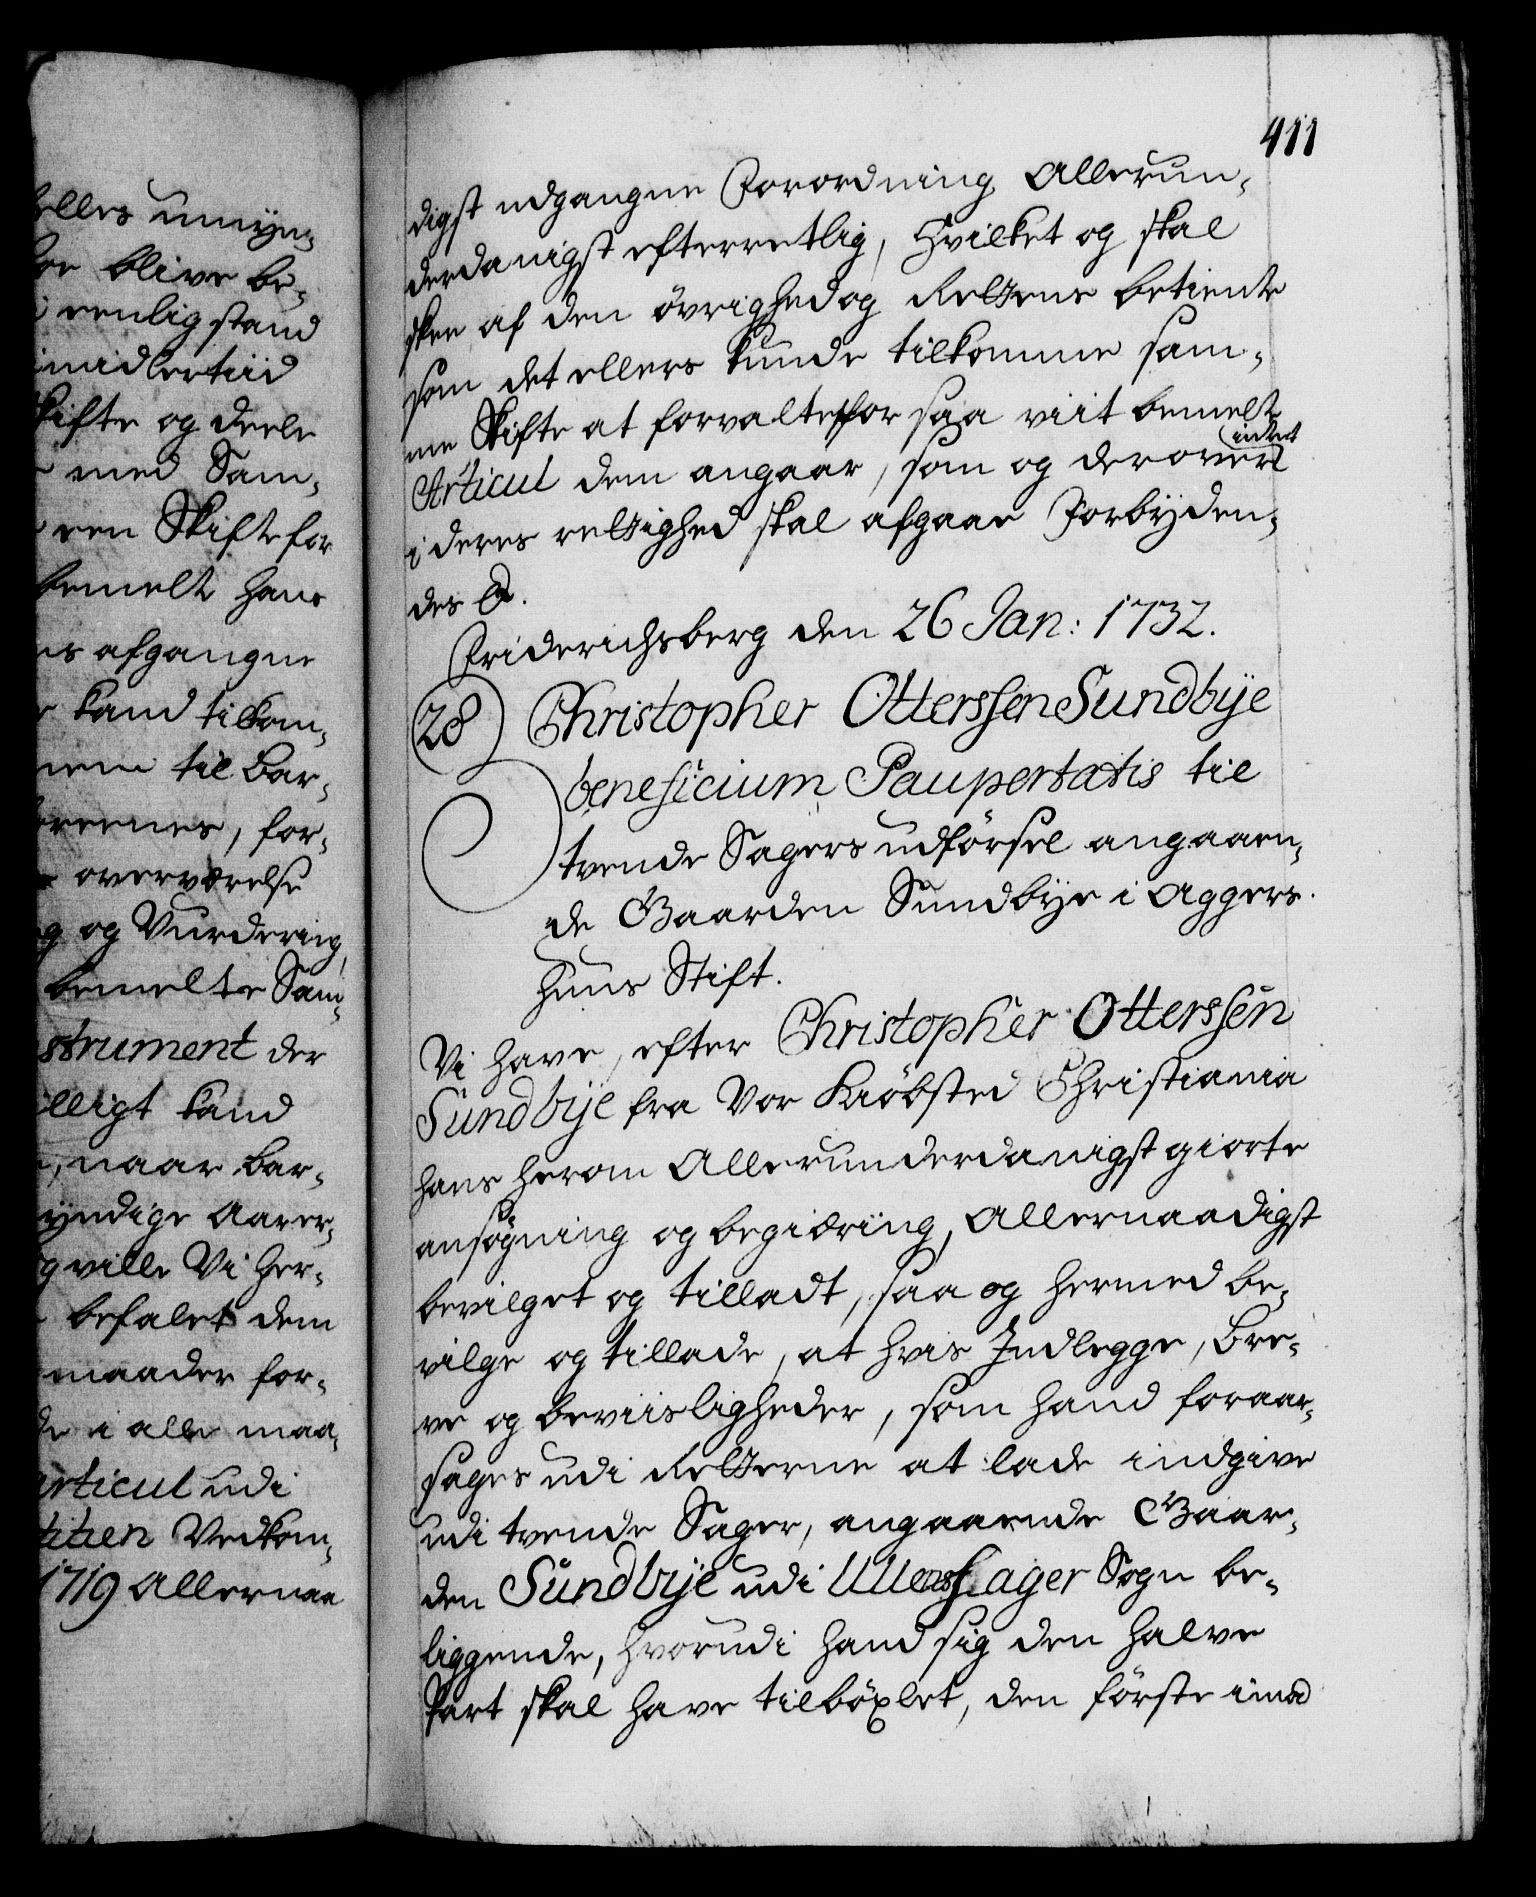 elles umyn-
for blive be-
i eenlig stand
imidlertiid
skifte og deele
med Sam-
ren Skifte for
bemelt hans
es afgangne
kand tilkom-
nem til Bar-
ereenes, for-
overværelse
g og Vurdering
bemelte Sam-
strument der
lligt kand
, naar bar-
yndige Aarer-
g ville Vi her-
befalet dem
maader for-
de i alle maa-
Articul udi
titien Vedkom-
1719 Allernaa
411
digst udgangne Forordning Allerun-
derdanigst efterretlig, hvilket og skal
skee af den övrighed og Rettens betiente
som det ellers kunde tilkomme sam-
me Skifte at forvalte, for saa viit bemelte
Articul dem angaar, som og derover intet
i deres rettighed skal afgaae Forbyden-
des &.
Friderichsberg den 26 Jan: 1732.
28 Christopher Otterssen Sundbye
beneficium Paupertatis til
tvende Sagers udførsel angaaen-
de Gaarden Sundbye i Aggers-
huus Stift.
Vi have, efter Christopher Otterssen
Sundbye fra Vor Kiöbsted Christiania
hans herom Allerunderdanigst giorte
ansögning og begiæring, Allernaadigst
bevilget og tilladt, saa og hermed be-
vilge og tillade, at hvis Indlegge, Bre-
ve og beviisligheder, som hand foraar-
sages udi Retterne at lade indgive
udi tvende Sager, angaaende Gaar-
den Sundbye udi Ullensager Sogn be-
liggende, hvorudi hand sig den halve
Part skal have tilböxlet, den förste imod